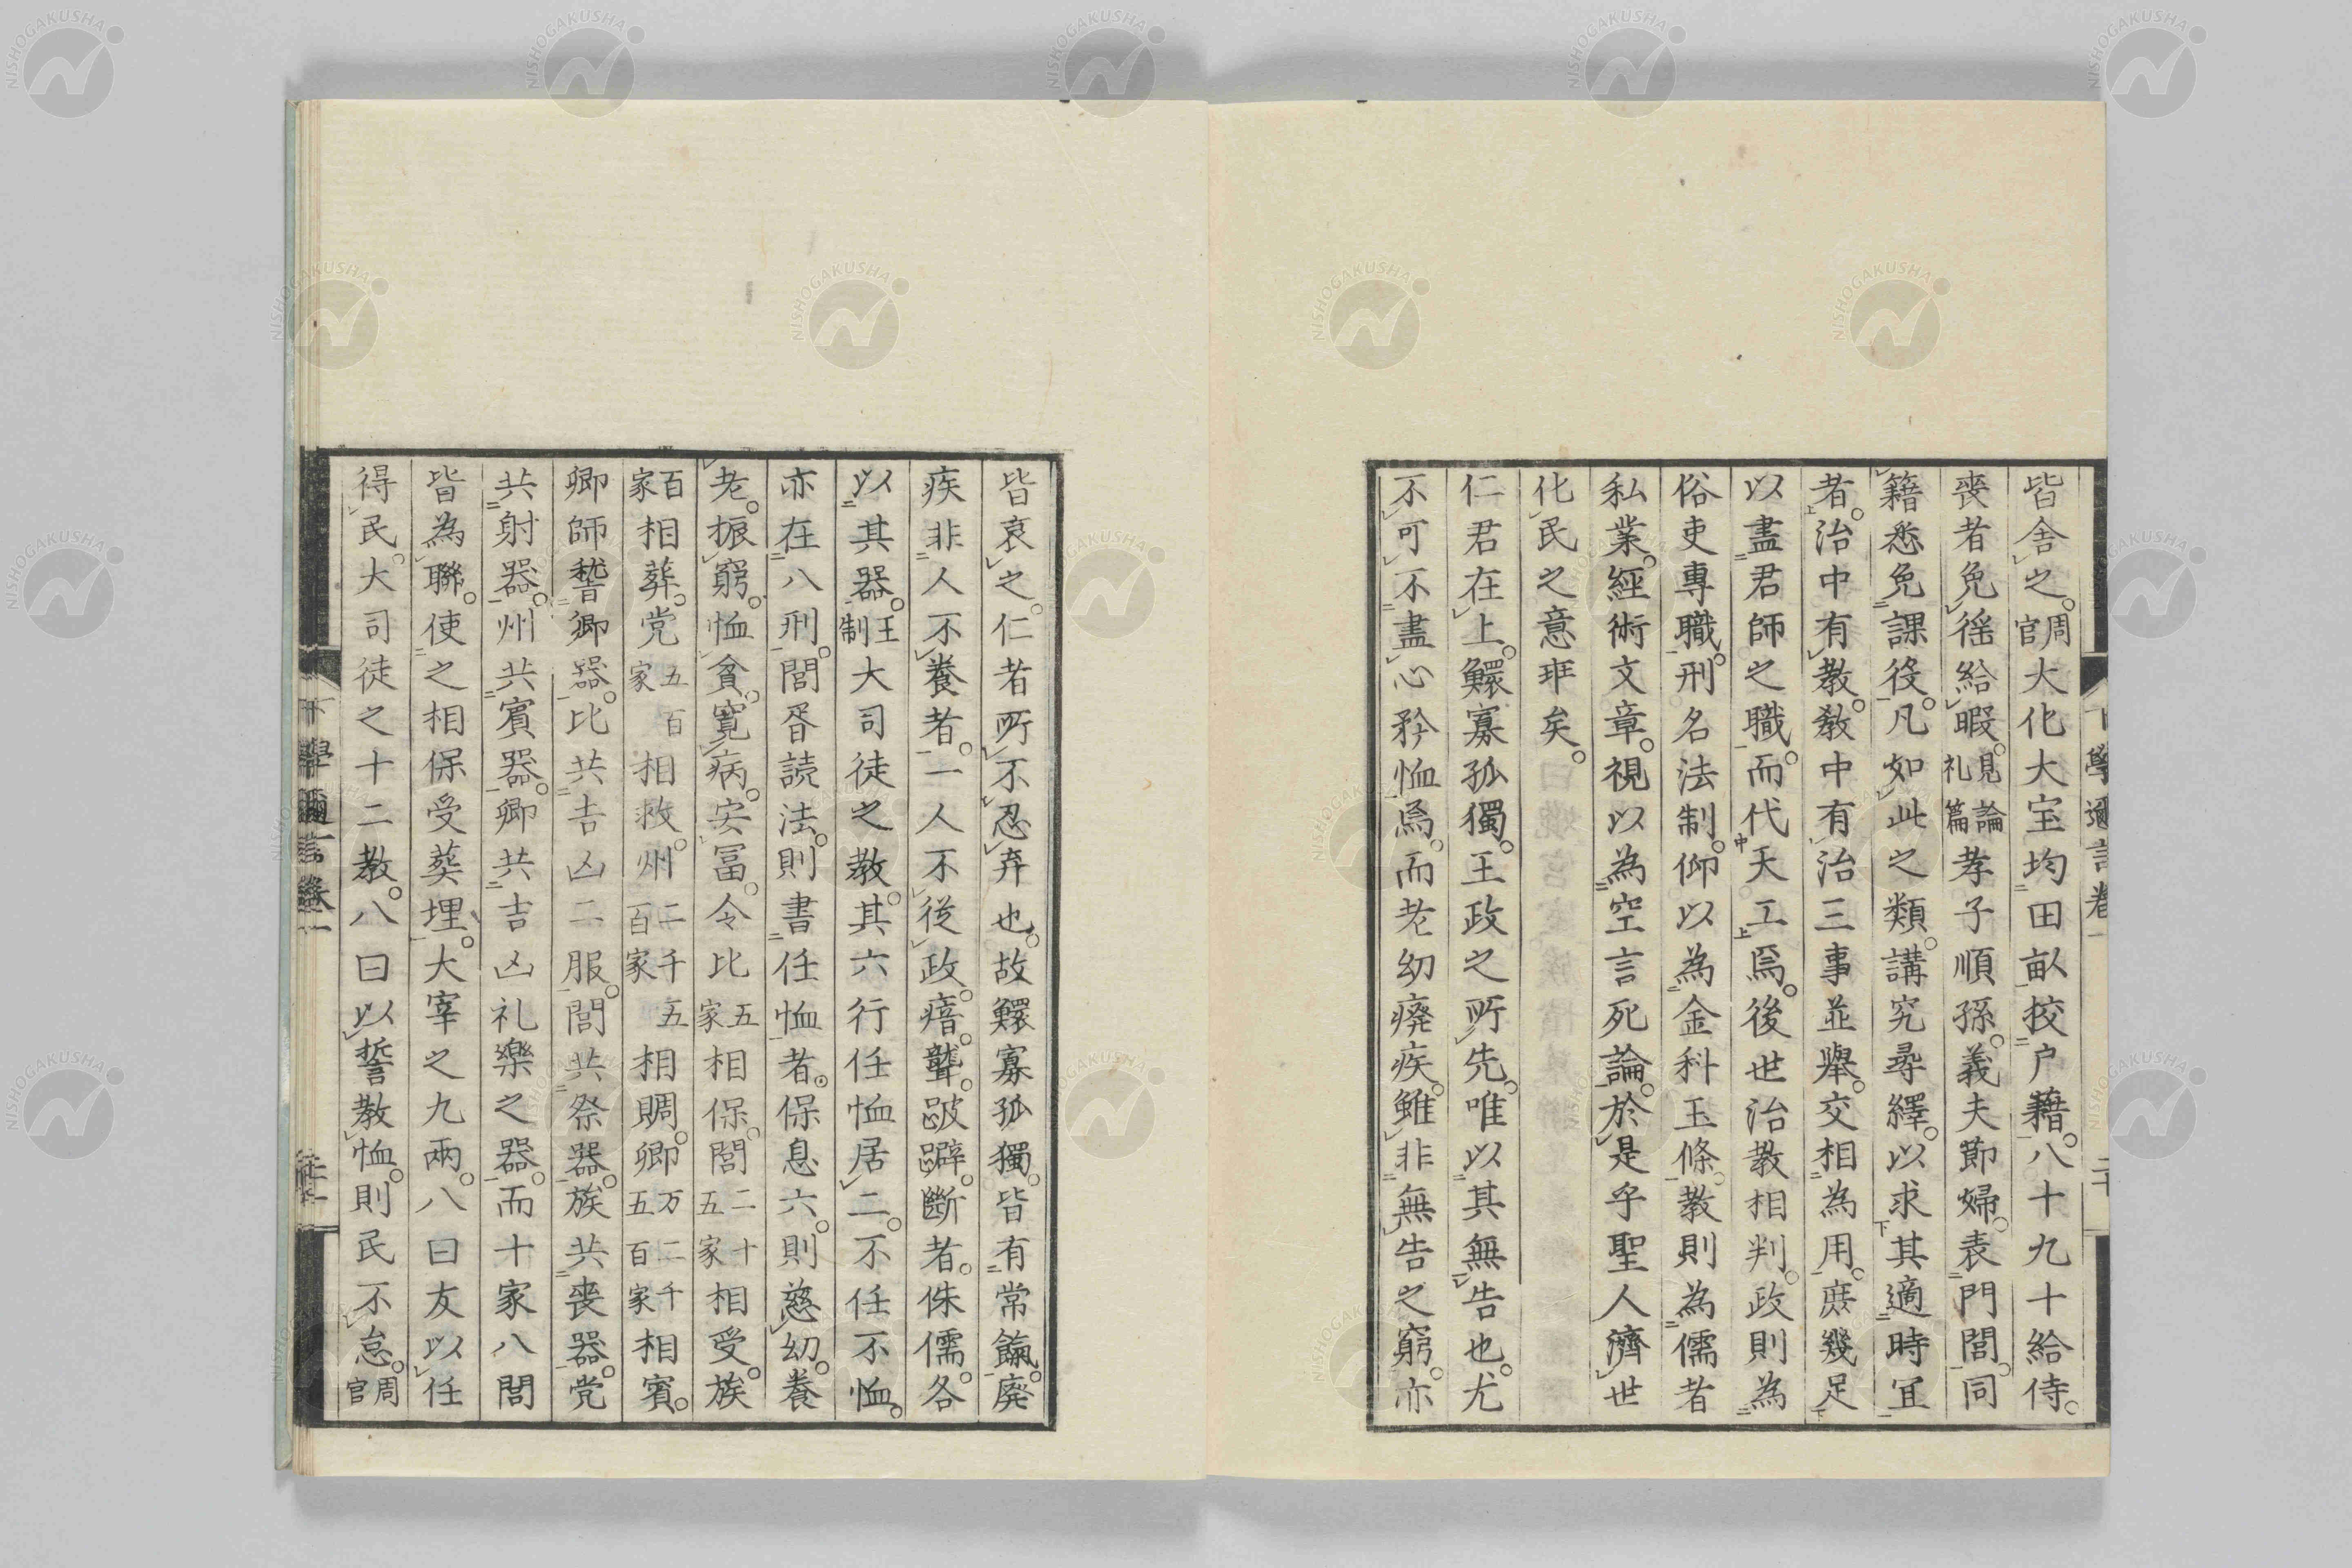 皆舍之。周官大化大宝均田畝挍户籍。八十九十給侍。
喪者免徭給暇。見礼論篇孝子順孫。義夫節婦。表門閭。同
籍悉免課役。凡如此之類。講究尋繹。以求其適時宜
者。治中有教。教中有治三事並舉。交相為用。庶幾足
以盡君師之職。而代天工焉。後世治教相判。政則為
俗吏專職。刑名法制。仰以為金科玉條。教則為儒者
私業。經術文章。視以為空言死論。於是乎聖人濟世
化民之意荓矣。
仁君在上。鰥寡孤獨。王政之所先。唯以其無告也。尤
不可不盡心矜恤焉。而老幼癈疾。雖非無告之窮。亦
皆哀之。仁者所不忍弃也。故鰥寡孤獨。皆有常餼。廢
疾非人不養者。一人不從政。瘖。聾。跛躃。斷者。侏儒。各
以其器。王制大司徒之教。其六行任恤居二。不任不恤。
亦在八刑。閭胥読法。則書任恤者。保息六。則慈幼。養
老。振窮。恤貧。寛病。安冨。令比五家相保。閭二十五家相受。族
百家相葬。党五百家相救。州二千五百家相賙。郷万二千五百家相賓。
郷師誓郷器。比共吉凶二服。閭共祭器。族共喪器。党
共射器。州共賓器。郷共吉凶礼樂之器。而十家八閭
皆為聯。使之相保受葬埋。大宰之九兩。八曰友以任
得民。大司徒之十二教。八曰以誓教恤。則民不怠。周官
下學邇言卷一